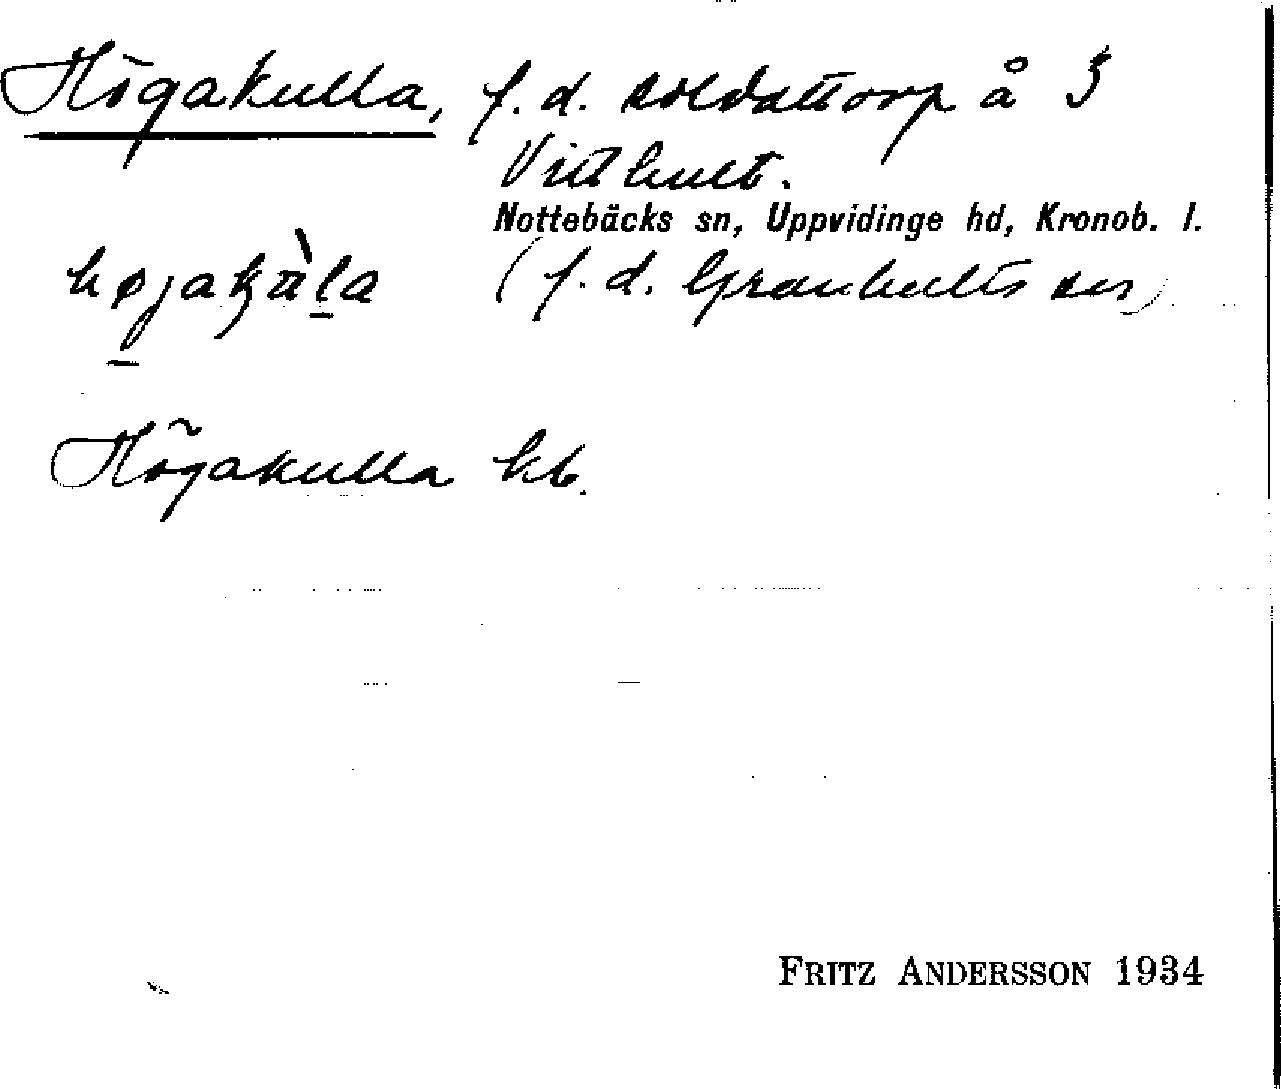 Högakulla, f.d. soldattorp å §
Vitthult.
Nottebäcks sn, Uppvidinge hd, Kronob. l.
(f.d. Granhults sn)
Högakulla kb.
FRITZ ANDERSSON 1934